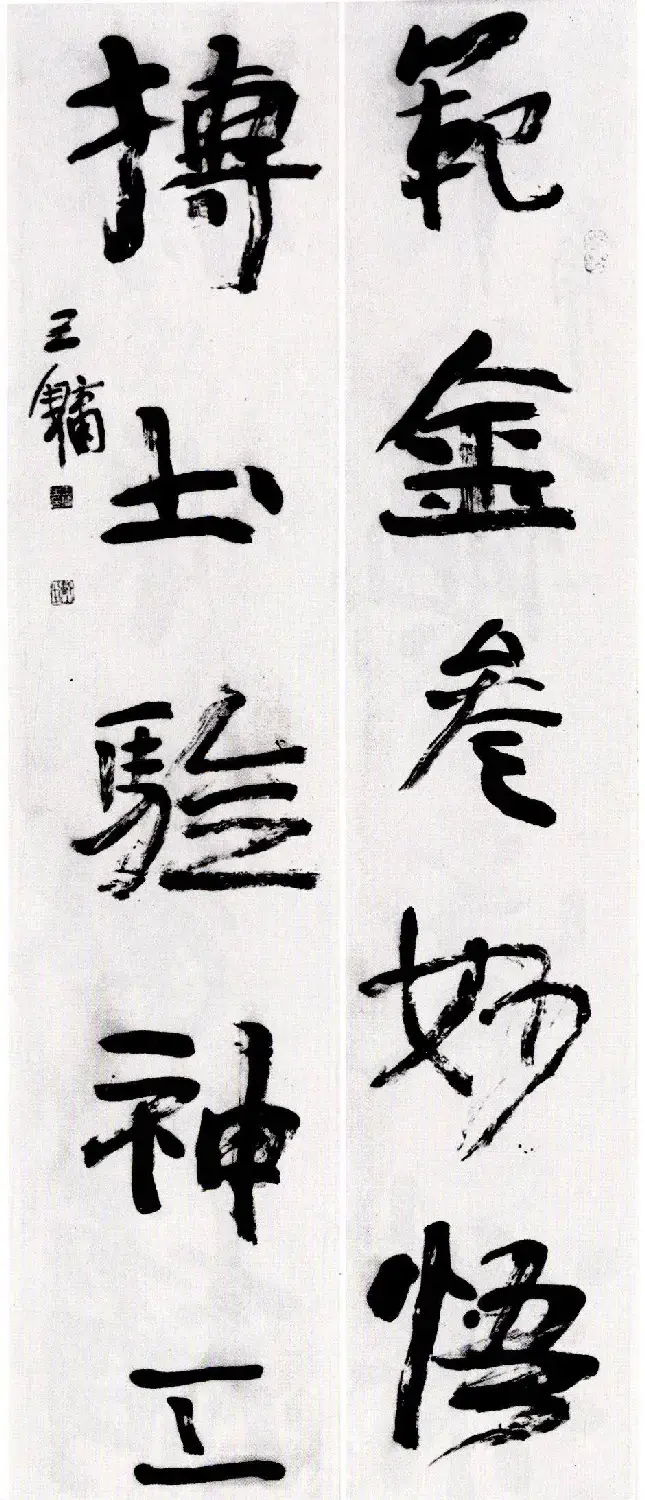 範金參妙悟
摶土驗神工
王鏞